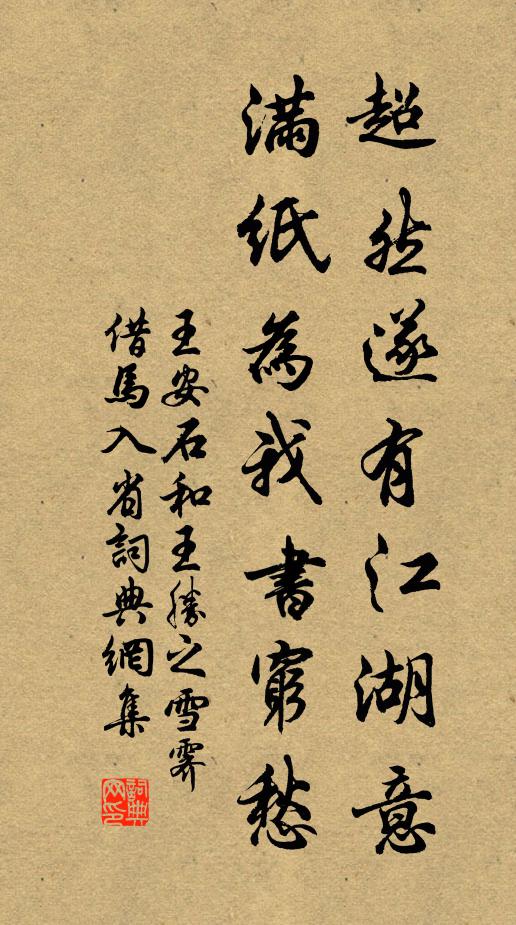 超然遂有江湖意
滿紙為我書窮愁
王安石和王勝之雪霽
借馬入省詞典網集
詞典
网印